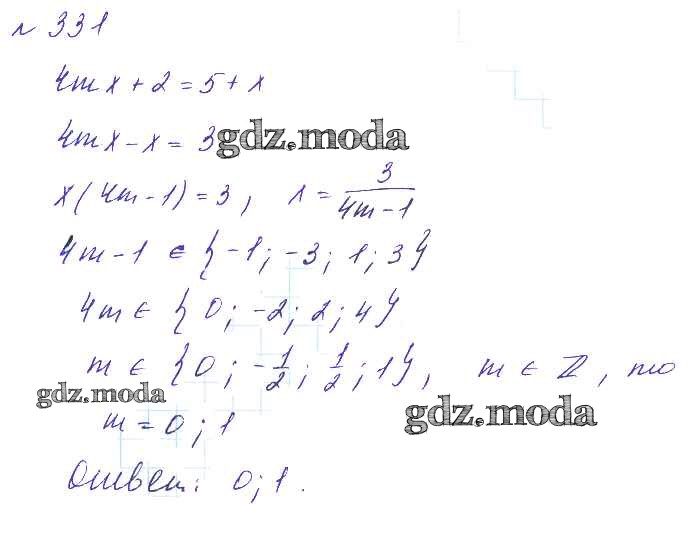 № 331
4mx + 2 = 5 + x
4mx - x = 3
gdz.moda
x(4m - 1) = 3, x = 3/(4m - 1)
4m - 1 ∈ {-1; -3; 1; 3}
4m ∈ {0; -2; 2; 4}
m ∈ {0; -1/2; 1/2; 1}, m ∈ ℤ, то
gdz.moda
gdz.moda
m = 0; 1
Ответ: 0; 1.